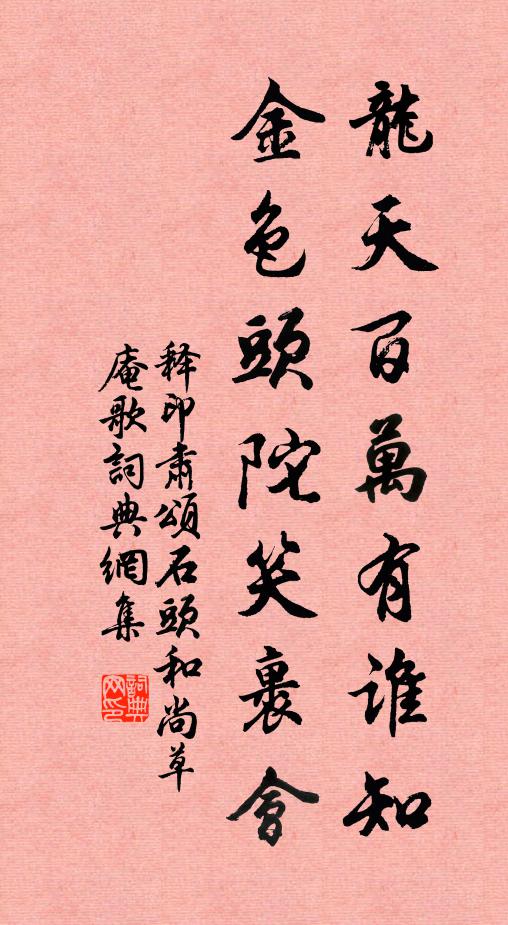 龍天百萬有誰知
金色頭陀笑裏會
释印肃頌石頭和尚草
庵歌詞典網集
詞典网印